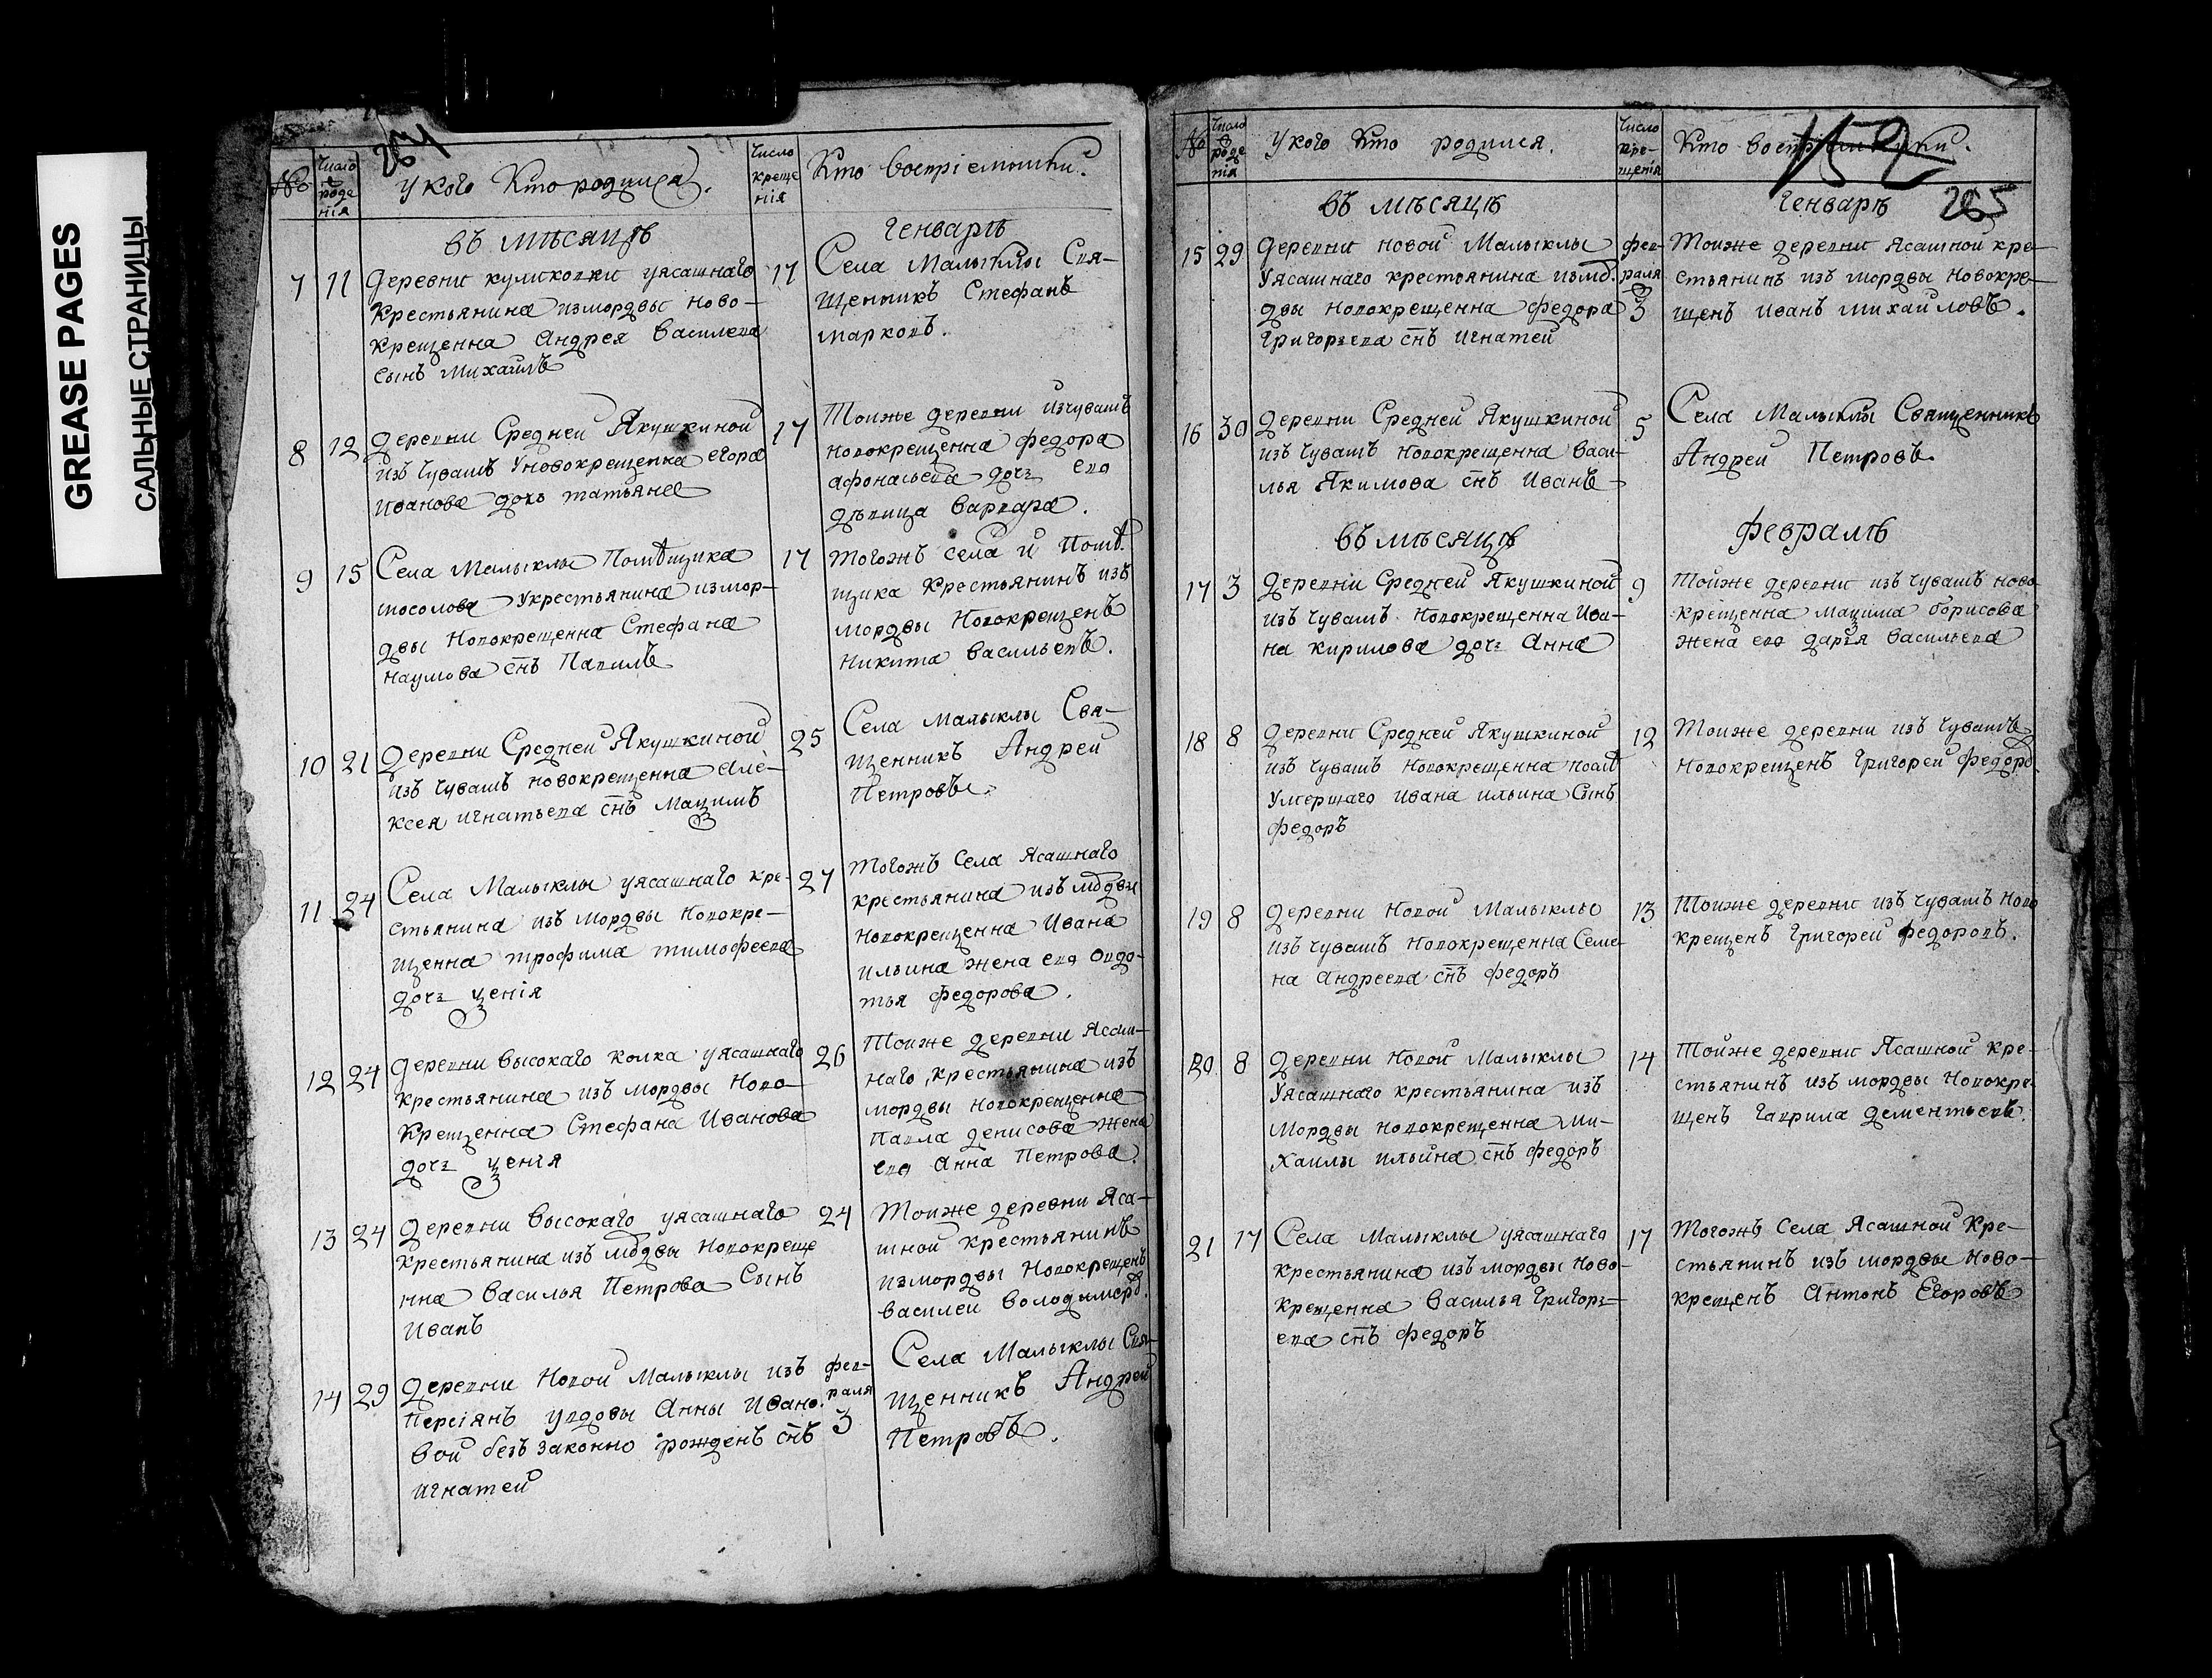 GREASE PAGES
САЛЬНЫЕ СТРАНИЦЫ
264
№
Число
роде
нія
У кого Кто родился.
Число
креще
нія
Кто воспріемники.
въ мѣсяцѣ
Генварѣ
7
11
деревни куликовки уясашнаго
крестьянина измордвы ново-
крещенна Андрея Василева
сынъ Михаилъ
17
Села Малыклы Свя-
щенникъ Стефанъ
марковъ.
8
12
деревни Средней Якушкиной
изъ Чувашъ Уновокрещенна егора
Иванова дочь татьяна
17
Тоиже деревни изчувашъ
новокрещенна федора
афонасьева дочь его
дѣвица варвара.
9
15
Села Малыклы Помѣщика
мосолова Укрестьянина измор-
двы Новокрещенна Стефана
наумова снъ Павилъ
17
тогожъ села и помѣ-
щика Крестьянинъ изъ
мордвы Новокрещенъ
никита васильевъ.
10
21
деревни Средней Якушкиной
изъ чувашъ новокрещенна Але-
ксея игнатьева снъ Маѯимъ
25
Села малыклы Свя-
щенникъ Андреи
Петровъ.
11
24
Села Малыклы уясашнаго кре-
стьянина изъ мордвы новокре-
щенна трофима тимофеева
дочь ѯенія
27
тогожъ Села Ясашнаго
крестьянина изъ мордвы
новокрещенна Ивана
ильина жена его овдо-
тья федорова.
12
24
деревни высокаго колка уясашнаго
крестьянина изъ мордвы Ново-
крещенна Стефана Иванова
дочь ѯенія
26
Тоиже деревни Ясаш-
наго крестьянина изъ
мордвы новокрещенна
Павла денисова жена
его Анна Петрова.
13
24
деревни высокаго уясашнаго
крестьянина изъ мордвы Новокреще
нна Василья Петрова Сынъ
Иванъ
24
Тоиже деревни Яса-
шной крестьянинъ
измордвы Новокрещенъ
василеи володимеровъ.
14
29
деревни Новой Малыклы изъ
Персіянъ увдовы Анны Ивано-
вой безъ законно рожденъ снъ
игнатей
фев-
раля
3
Села Малыклы Свя-
щенникъ Андрей
Петровъ.
№
Число
роде
нія
У кого Кто родился.
Число
кре-
щенія
Кто воспріемники.
152
въ мѣсяцѣ
Генварѣ
265
15
29
деревни новой Малыклы
Уясашнаго крестьянина измор-
двы новокрещенна федора
Григорьева снъ Игнатей
фев-
раля
3
Тоиже деревни ясашной кре-
стьянинъ изъ мордвы Новокре-
щенъ Иванъ михаиловъ.
16
30
деревни Средней Якушкиной
изъ Чувашъ новокрещенна Васи-
лья Якимова снъ Иванъ
5
Села Малыклы Священникъ
Андреи Петровъ.
въ мѣсяцѣ
февралѣ
17
3
деревни Средней Якушкиной
изъ Чувашъ Новокрещенна Ива-
на кирилова дочь Анна
9
Тойже деревни изъ Чувашъ ново
крещенна маѯима борисова
жена его дарья васильева
18
8
деревни Средней Якушкиной
изъ чувашъ новокрещенна
Умершаго ивана ильина Сынъ
федоръ
12
Тоиже деревни изъ Чувашъ
новокрещенъ Григореи федоров.
19
8
деревни Новой Малыклы
изъ чувашъ новокрещенна Семе-
на Андреева снъ федоръ
13
Тоиже деревни изъ чувашъ Ново
крещенъ Григореи федоровъ.
20
8
деревни Новой Малыклы
Уясашнаго крестьянина изъ
Мордвы новокрещенна ми-
хаилы ильина снъ федоръ
14
Тойже деревни Ясашной кре-
стьянинъ изъ мордвы Новокре-
щенъ Гаврила дементьевъ
21
17
Села Малыклы уясашнаго
крестьянина изъ мордвы Ново-
крещенна Василья Григорь-
ева снъ федоръ
17
тогожъ Села Ясашной кре-
стьянинъ изъ мордвы ново-
крещенъ Антонъ Егоровъ